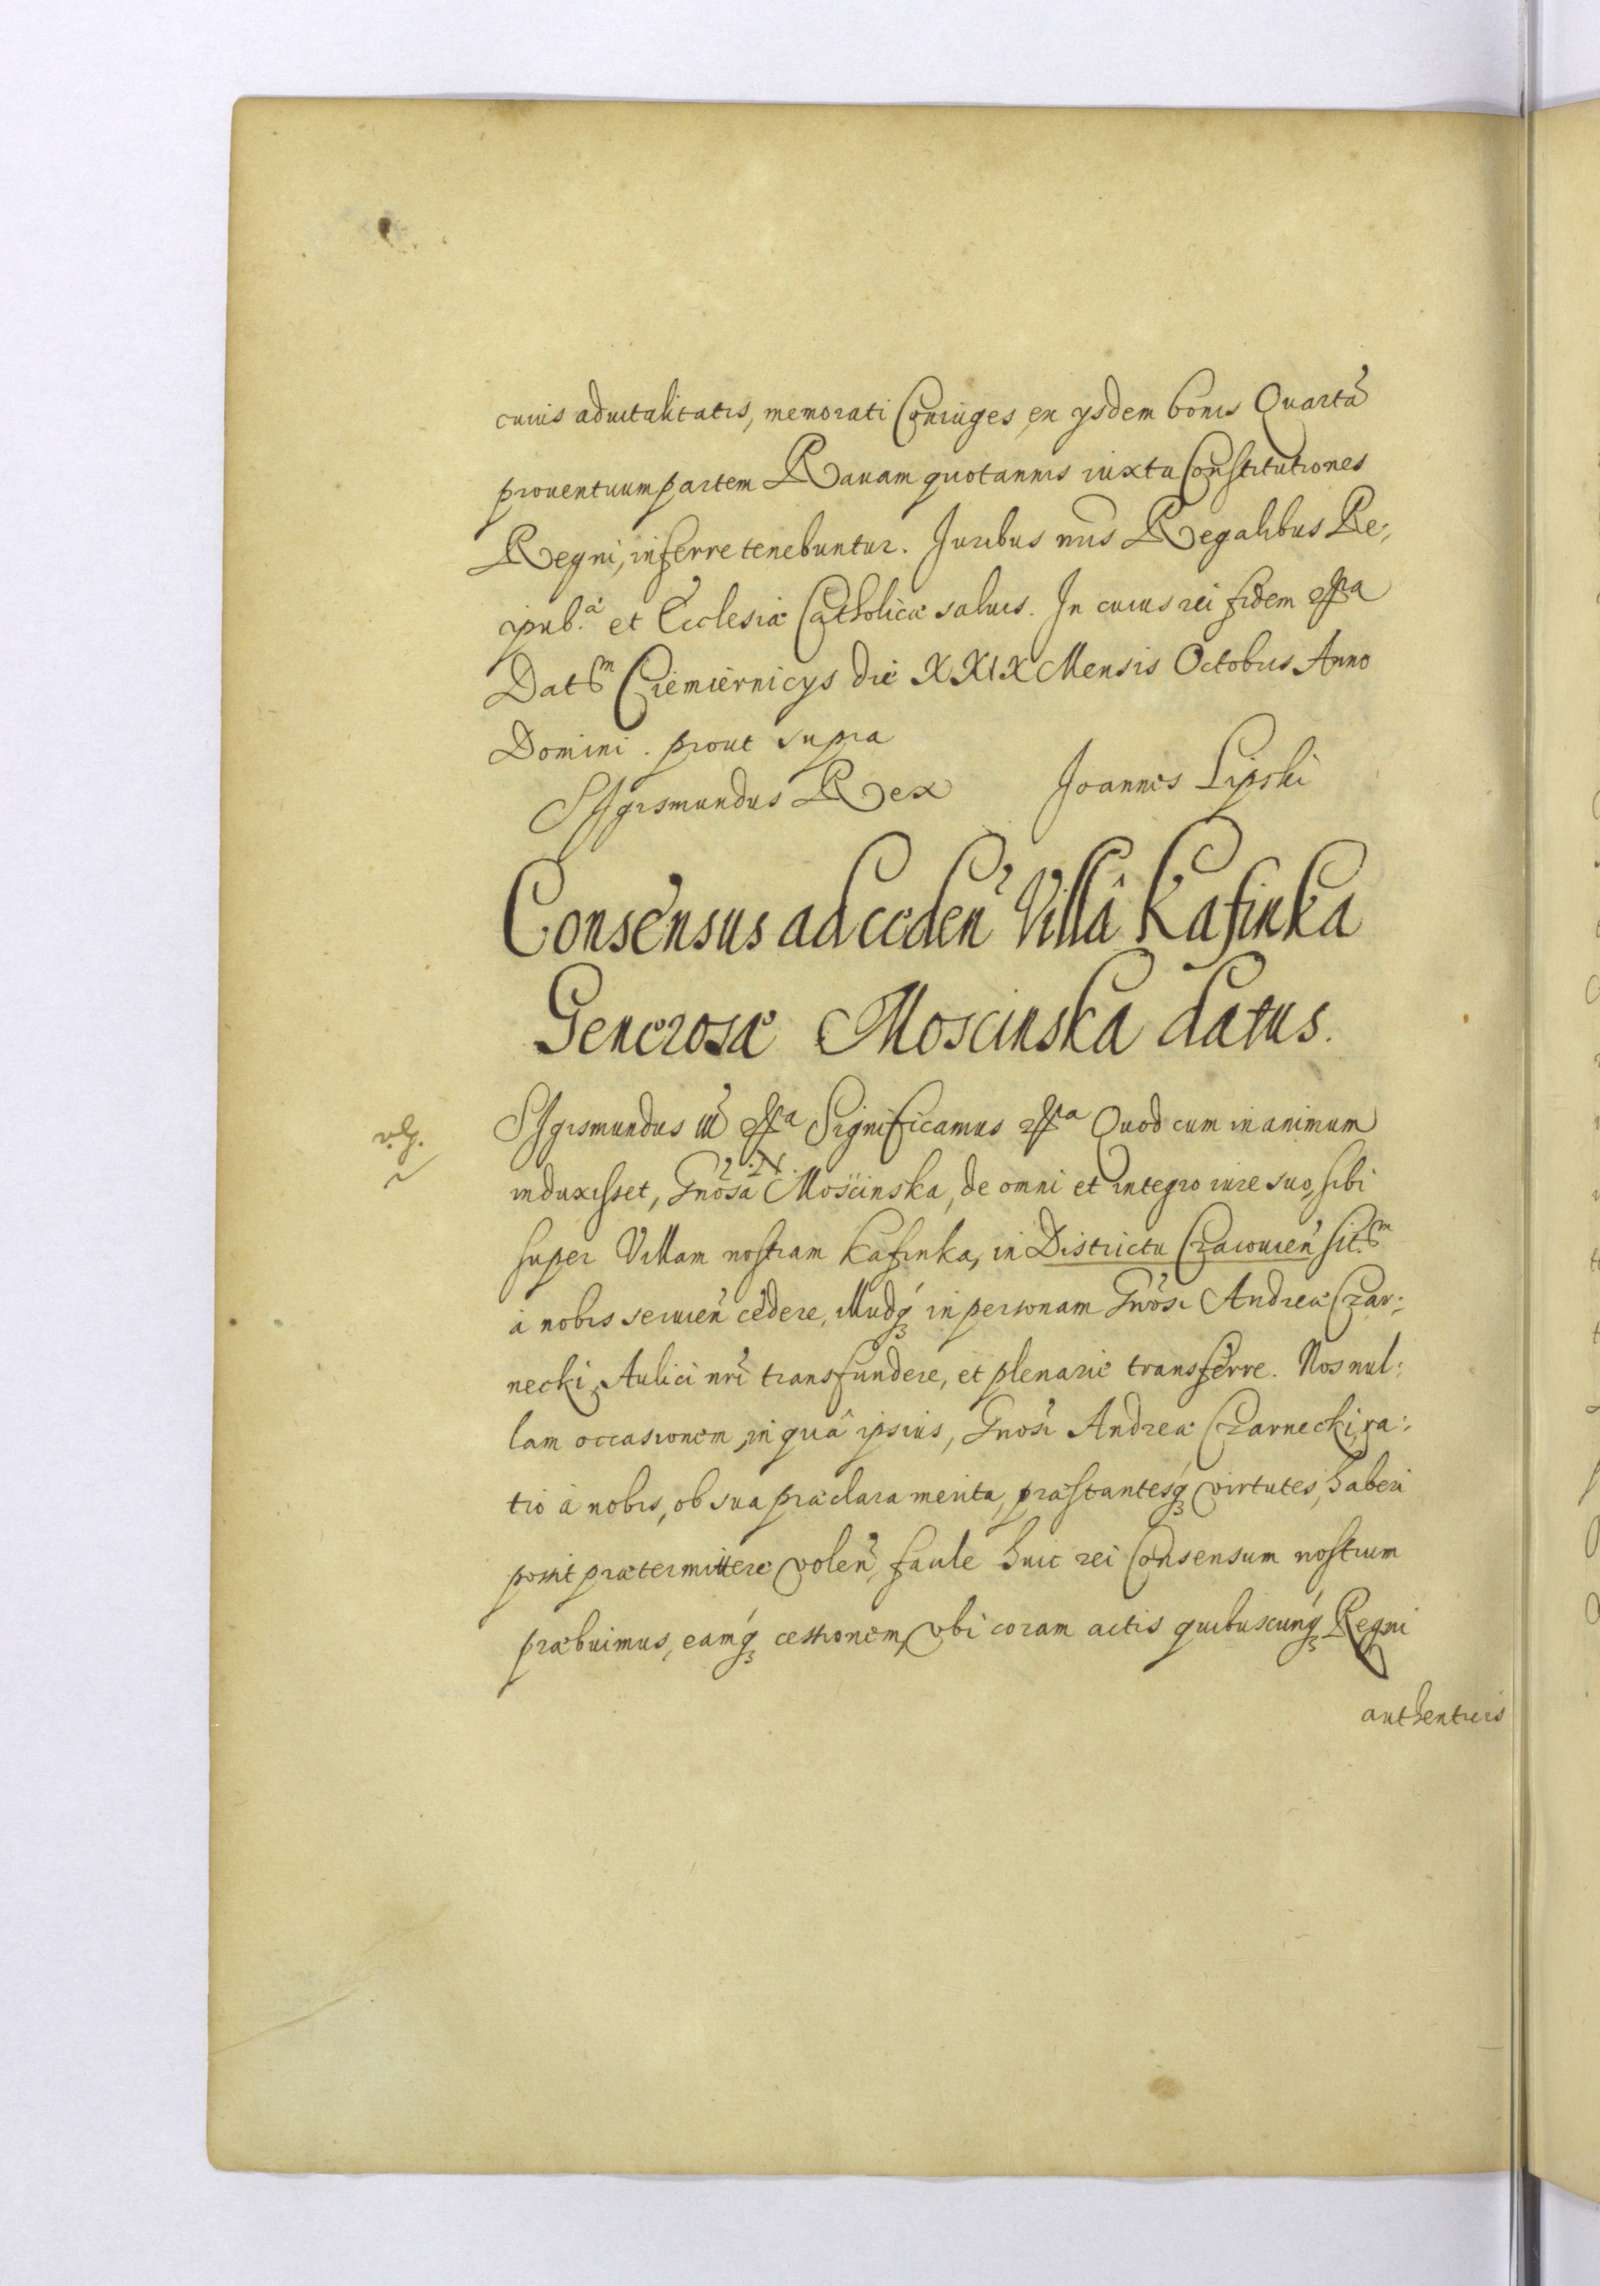 cuius aduitalitatis, memorati Coniuges, ex ysdem bonis Quartã
prouentuum partem Rauam quotannis iuxta Constitutiones
Regni, inferre tenebuntur. Juribus nr̃is Regalibus Re:
ipub.ᵃ et Ecclesiæ Catholicæ saluis. In cuius rei fidem &ᵃ
Datᵐ Ciemiernicys die XXIX Mensis Octobris Anno
Domini. prout supra
Sigismundus Rex Joannes Lipski
Consensus ad ceden̉ Villâ Kasinka
Generosæ Moscinska datus.
v.g.
Sigismundus III &ᵃ Significamus &ᵃ Quod cum in animum
induxisset, Gnosa .N. Moscinska, de omni et integro iure suo, sibi
super Villam nostram Kasinka, in Districtu Czarouien̉ sit.ᵐ
à nobis seruien̉ cedere, illudq́ in personam Gnosi Andreæ Czar:
necki, Aulici nr̃i transfundere, et plenarie transferre. Nos nul:
lam occasionem, in quâ ipsius, Gnosi Andreæ Czarnecki, ra:
tio à nobis, ob sua præclara merita, præstantesq́ virtutes, haberi
possit prætermittere volen̉, facile huic rei Consensum nostrum
præbuimus, eamq́ cessionem, vbi coram actis quibuscunq́ Regni
authenticis